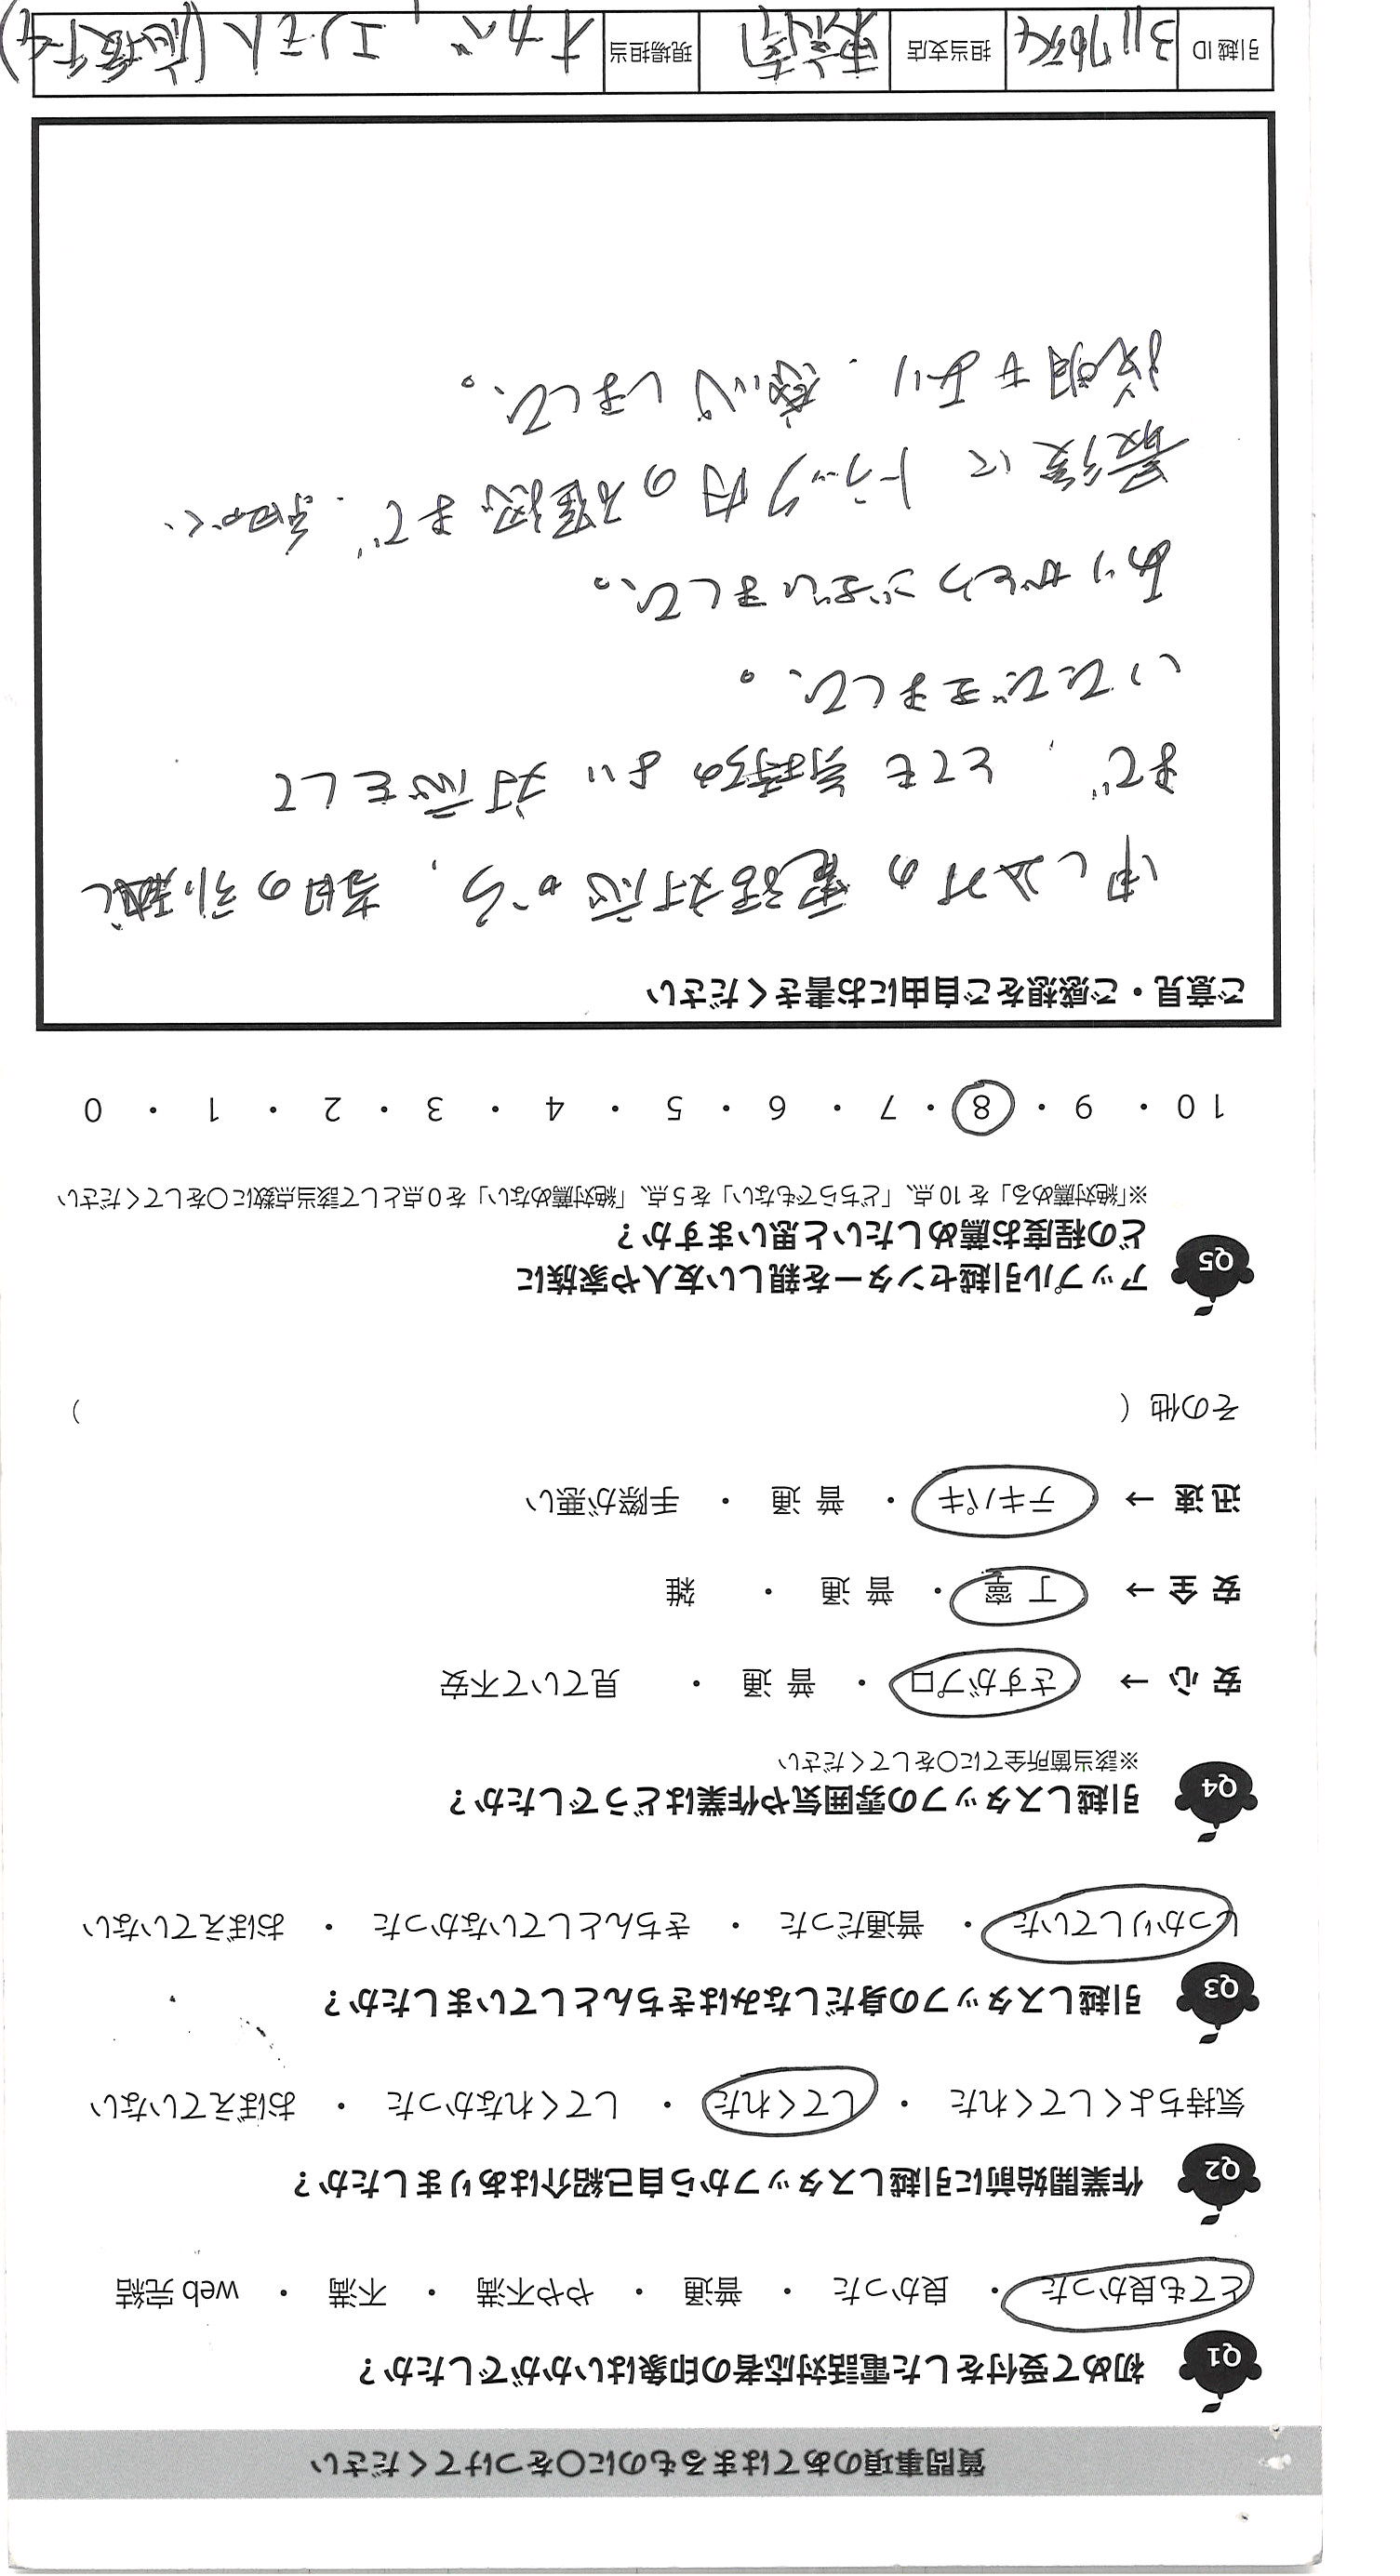 質問事項のあてはまるものに〇をつけてください
Q1 初めて受付をした電話対応者の印象はいかがでしたか？
とても良かった ・ 良かった ・ 普通 ・ やや不満 ・ 不満 ・ web 完結
Q2 作業開始前に引越しスタッフから自己紹介はありましたか？
気持ちよくしてくれた ・ してくれた ・ してくれなかった ・ おぼえていない
Q3 引越しスタッフの身だしなみはきちんとしていましたか？
しっかりしていた ・ 普通だった ・ きちんとしていなかった ・ おぼえていない
Q4 引越しスタッフの雰囲気や作業はどうでしたか？
※該当箇所全てに〇をしてください
安心 → さすがプロ ・ 普通 ・ 見ていて不安
安全 → 丁寧 ・ 普通 ・ 雑
迅速 → テキパキ ・ 普通 ・ 手際が悪い
その他（ ）
Q5 アップル引越センターを親しい友人や家族に
どの程度お薦めしたいと思いますか？
※「絶対薦める」を 10 点、「どちらでもない」を 5 点、「絶対薦めない」を 0 点として該当点数に〇をしてください
10 ・ 9 ・ 8 ・ 7 ・ 6 ・ 5 ・ 4 ・ 3 ・ 2 ・ 1 ・ 0
ご意見・ご感想をご自由にお書きください
申し込みの電話対応から、当日の引越し
まで、とても気持ちのよい対応をして
いただきました。
ありがとうございました。
最後にトラック内の確認まで、細かく
説明もあり、感心しました。
引越 ID 担当支店 東京南 現場担当 オカベ、エンモト